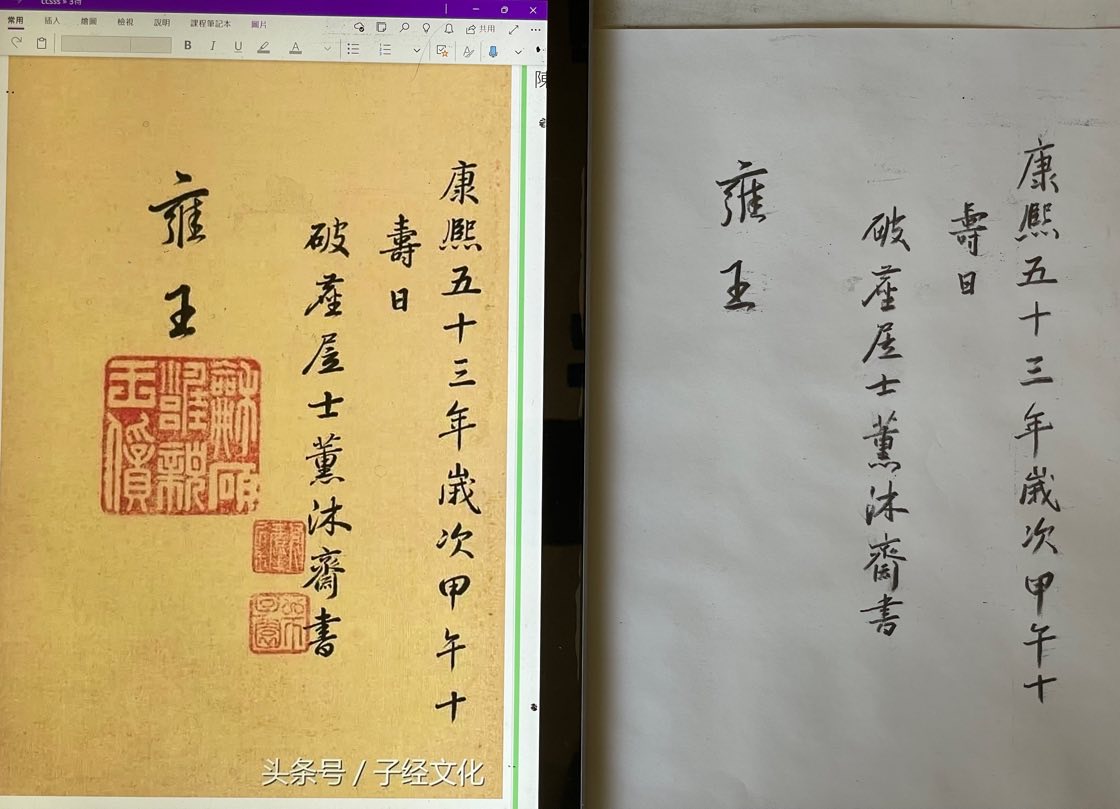 ccsss » 3待
常用 插入 繪圖 檢視 說明 課程筆記本 圖片
共用
B I U A
陳
康熙五十三年嵗次甲午十
壽日
破塵居士薰沐齋書
雍
王
头条号 / 子经文化
康熙五十三年嵗次甲午十
壽日
破塵居士薰沐齋書
雍
王